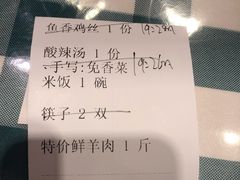 鱼香鸡丝 1 份
酸辣汤 1 份
手写:免香菜
米饭 1 碗
筷子 2 双
特价鲜羊肉 1 斤